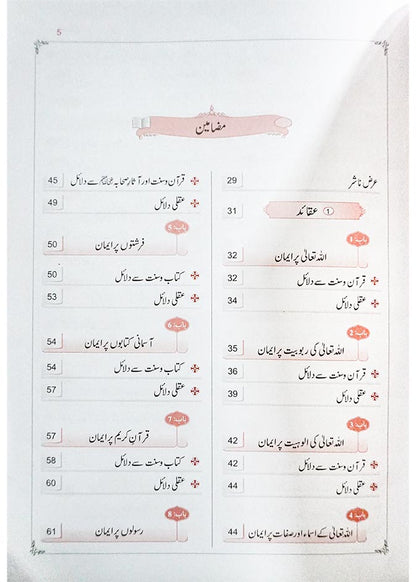 5
مضامین
عرض ناشر 29
① عقائد 31
باب: 1
اللہ تعالیٰ پر ایمان 32
قرآن و سنت سے دلائل 32
عقلی دلائل 34
باب: 2
اللہ تعالیٰ کی ربوبیت پر ایمان 35
قرآن و سنت سے دلائل 36
عقلی دلائل 39
باب: 3
اللہ تعالیٰ کی الوہیت پر ایمان 42
قرآن و سنت سے دلائل 42
عقلی دلائل 44
باب: 4
اللہ تعالیٰ کے اسماء اور صفات پر ایمان 44
قرآن و سنت اور آثارِ صحابہ سے دلائل 45
عقلی دلائل 49
باب: 5
فرشتوں پر ایمان 50
کتاب و سنت سے دلائل 50
عقلی دلائل 53
باب: 6
آسمانی کتابوں پر ایمان 54
کتاب و سنت سے دلائل 54
عقلی دلائل 57
باب: 7
قرآنِ کریم پر ایمان 57
کتاب و سنت سے دلائل 58
عقلی دلائل 60
باب: 8
رسولوں پر ایمان 61